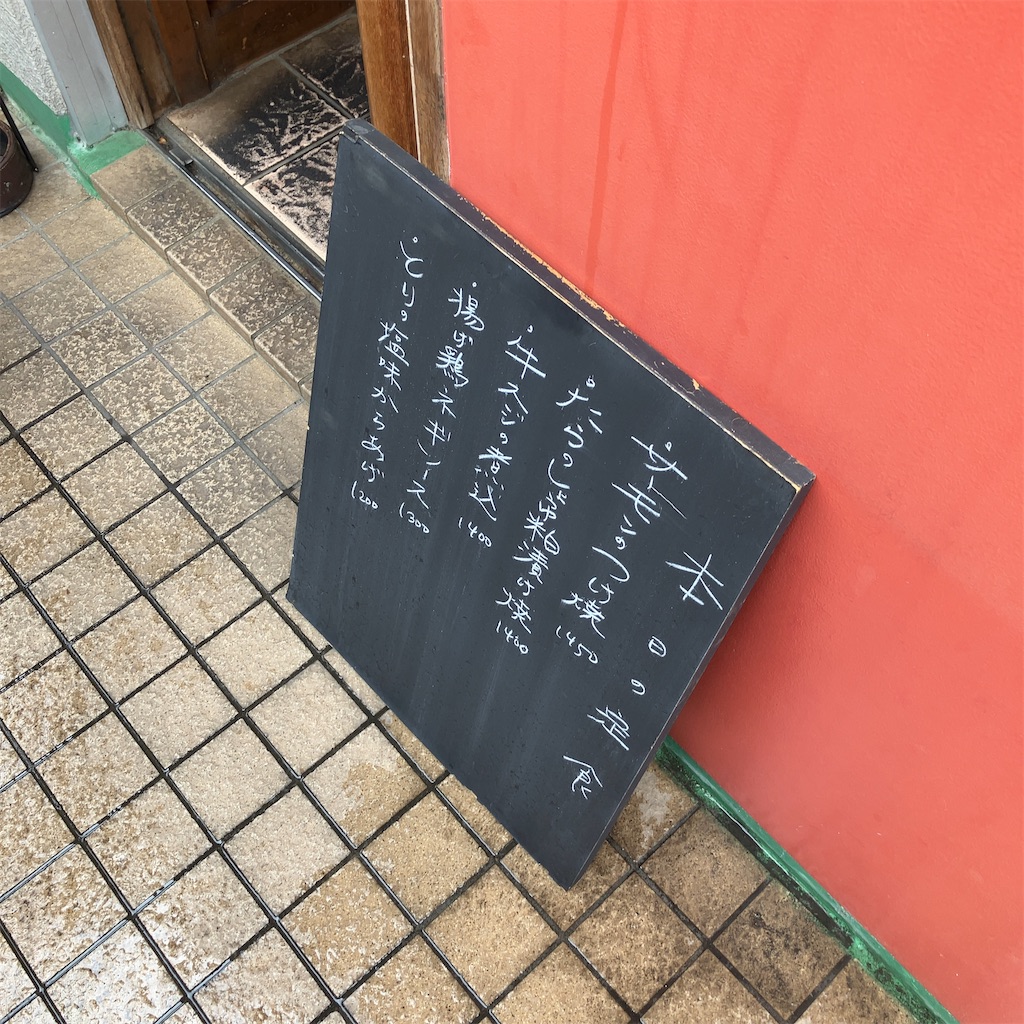 本日の定食
・サーモンのつけ焼 1450
・たらのしょうゆ粕漬け焼 1400
・牛スジの煮込 1400
・揚げ鶏ネギソース 1300
・とりの塩味からあげ 1200